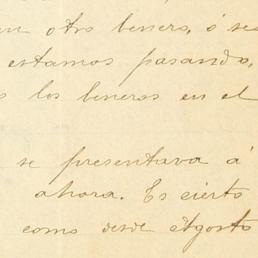 en otro beneros, ó sea
estamos pasando,
los beneros en el
se presentava á
ahora. Es cierto
como desde Agosto